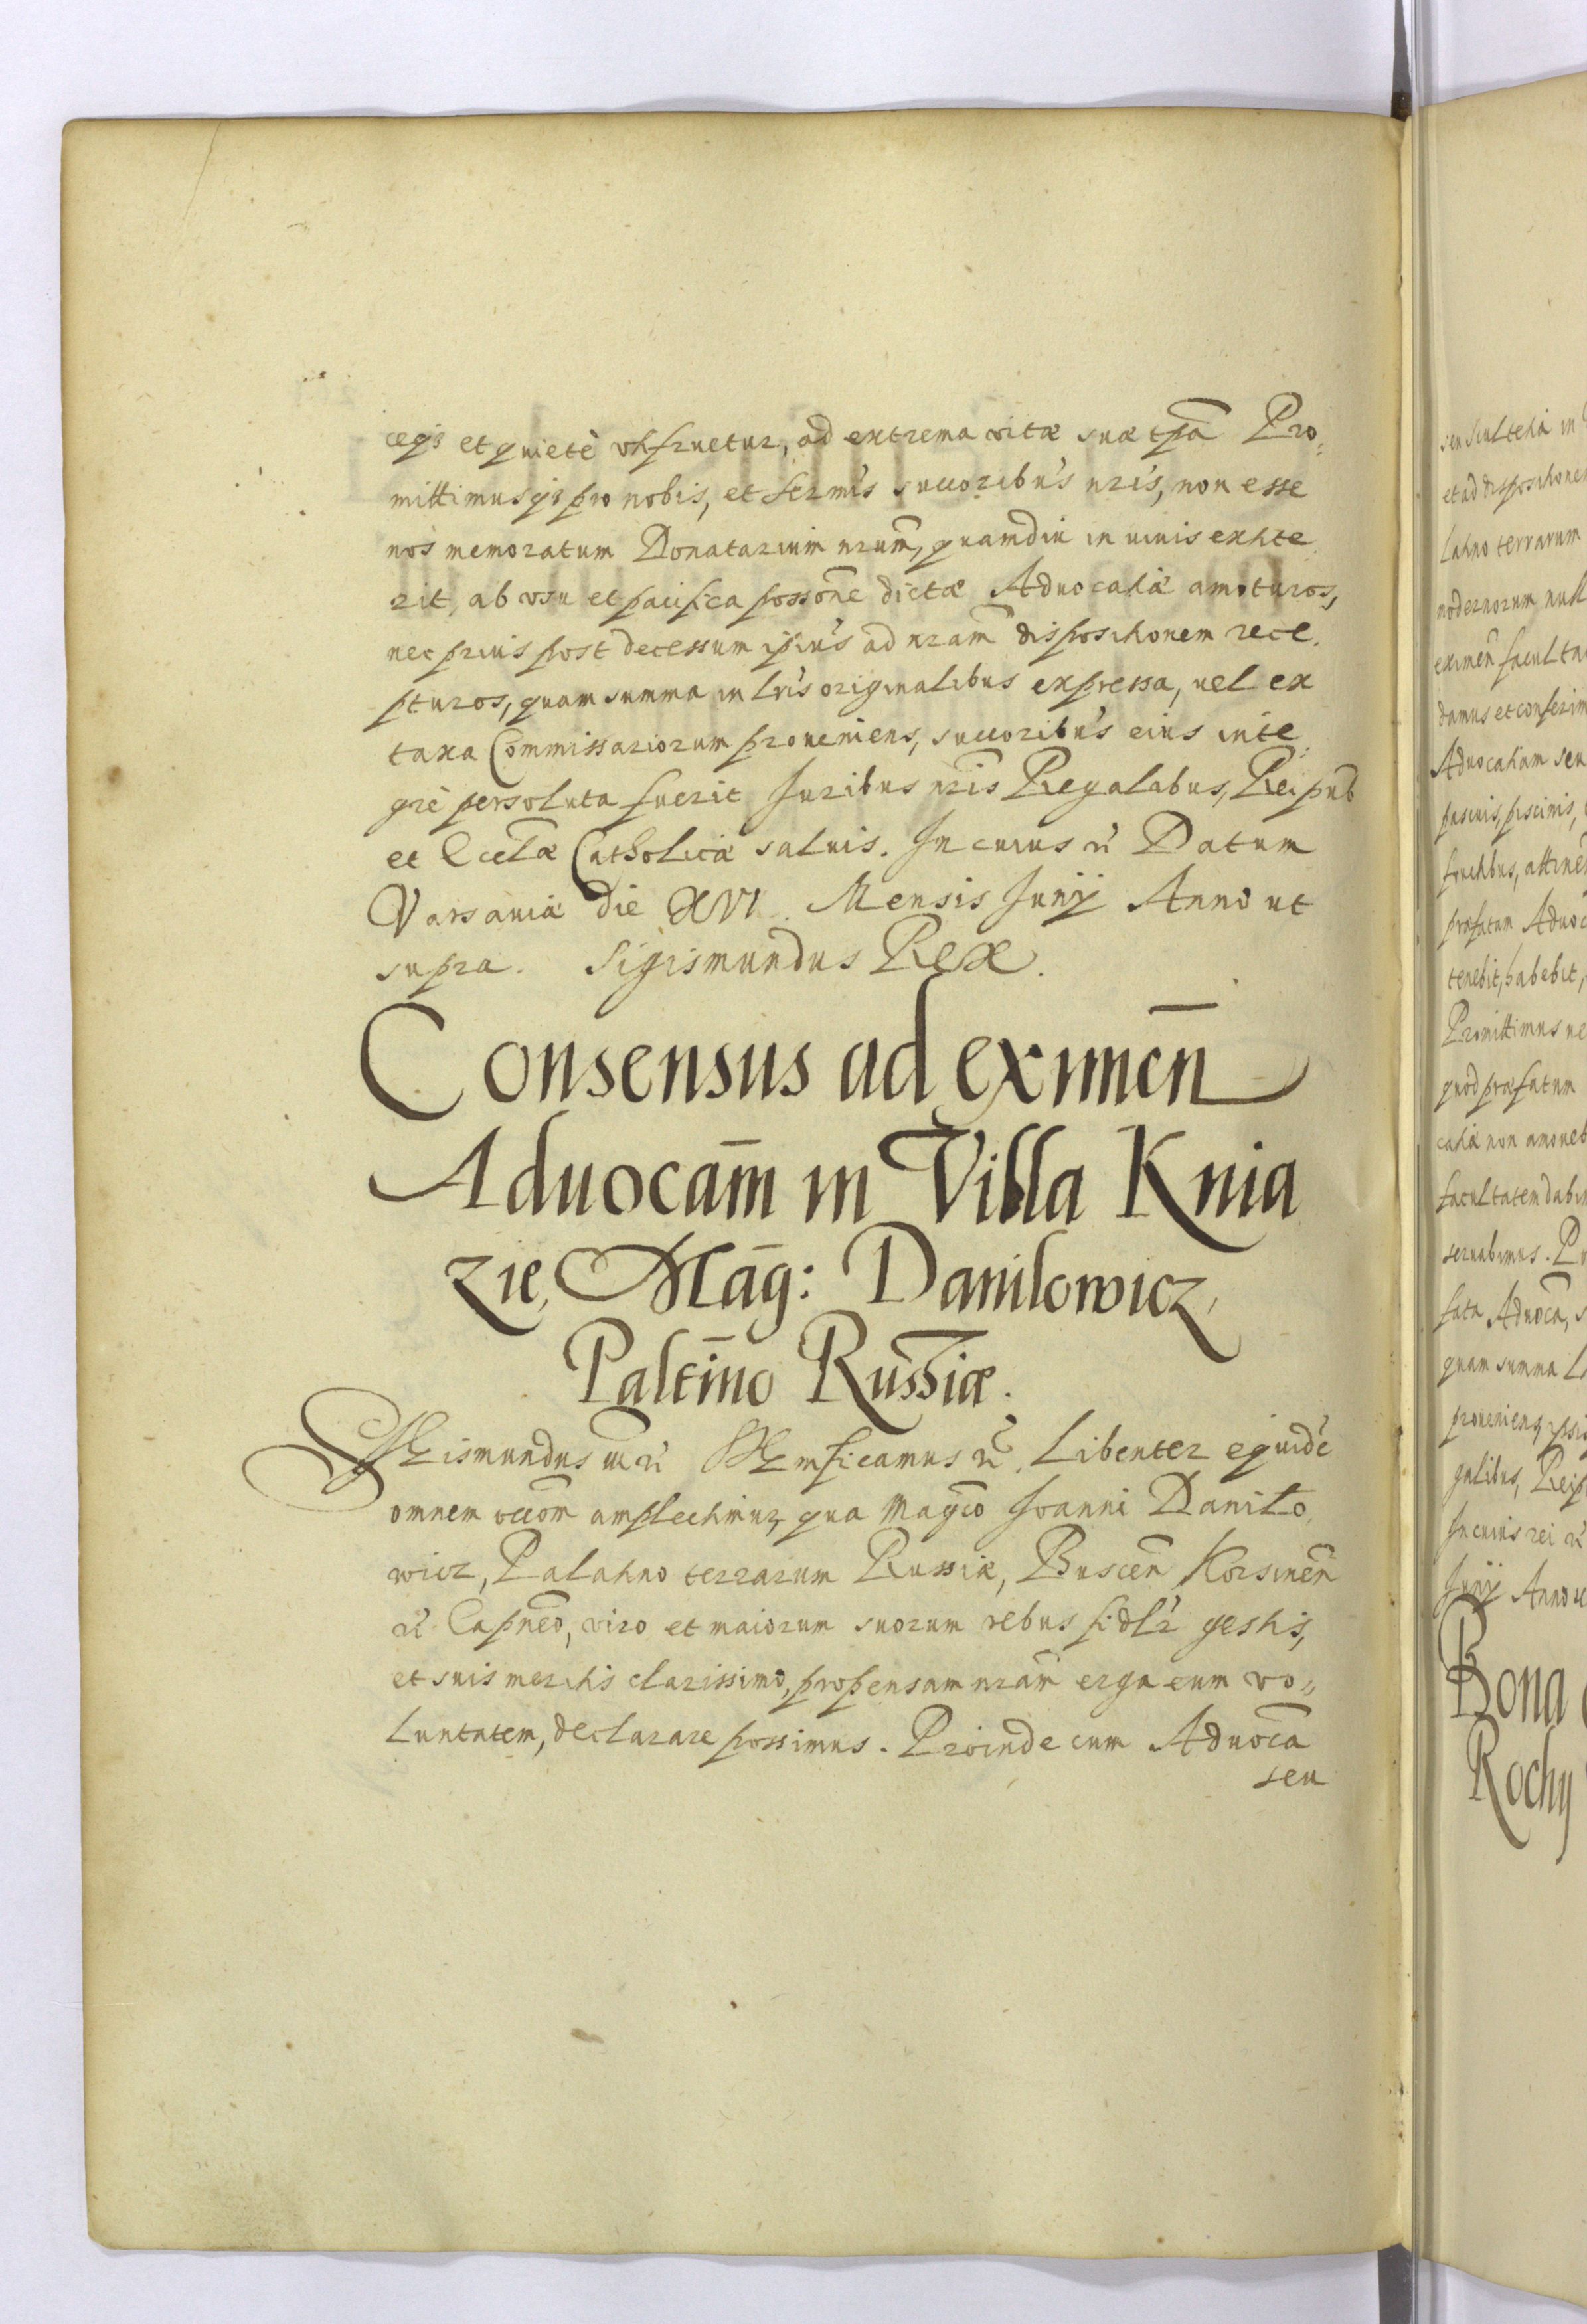 ceqз et quietè utifruetur, ad extrema vitæ suæ tpā Pro,
mittimusqз pro nobis, et Sermis successoribus nris, non esse
nos memoratum Donatarium nrum, quamdiu in uiuis exhte
rit, ab vsu et pacifica possone dictæ Aduocatiæ amoturos,
nec prius post decessum ipsius ad nram dispositionem rece.
pturos, quam summa in lris originalibus expressa, uel ex
taxa Commissariorum proueniens, succoribus eius inte,
grè persoluta fuerit Juribus nris Regalabus, Reipub
et Eccelæ Catholicæ saluis. In cuius rī Datum
Varsauiæ die XVI. Mensis Junij Anno ut
supra. Sigismundus Rex.
Consensus ad eximēn
Aduocam̄ in Villa Knia
zie, Māg: Danilowicz,
Paltīno Russiæ.
Sigismundus III rī Significamus rī. Libenter equidē
omnem occom̄ amplectimur, qua Magco Joanni Danilo,
wicz, Palatino terrarum Russiæ, Buscen̄ Korsinen̄
rī Capneo, viro et maiorum suorum rebus fidlr gestis,
et suis meritis clarissimo, propensam nram̄ erga eum vo„
luntatem, declarare possimus. Proinde cum Aduocā
seu
seu Scultetia in
et ad dispositionem
latino terrarum
modernorum
eximen̄ faculta
damus et conferim
Aduocatiam seu
pascuis, piscinis,
fructibus, attinen
præfatam Aduoc
tenebit, habebit,
Promittimus
quod præfatum
catiæ non amoueb
facultatem dabim
seruabimus.
fata Aduocā,
quam summa
proueniens, ipsi
galibus, Reip
In cuius rei rī
Junij Anno
Bona
Rochy